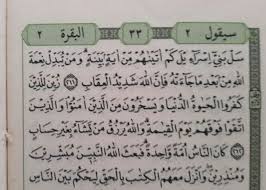 سيقول ٢ ٣٣ البقرة ٢
سَلْ بَنِىٓ اِسْرَآءِيْلَ كَمْ اٰتَيْنٰهُمْ مِّنْ اٰيَةٍۢ بَيِّنَةٍ ؕ وَمَنْ يُّبَدِّلْ نِعْمَةَ
اللّٰهِ مِنْۢ بَعْدِ مَا جَآءَتْهُ فَاِنَّ اللّٰهَ شَدِيْدُ الْعِقَابِ ﴿٢١١﴾ زُيِّنَ لِلَّذِيْنَ
كَفَرُوا الْحَيٰوةُ الدُّنْيَا وَيَسْخَرُوْنَ مِنَ الَّذِيْنَ اٰمَنُوْا ۘ وَالَّذِيْنَ
اتَّقَوْا فَوْقَهُمْ يَوْمَ الْقِيٰمَةِ ؕ وَاللّٰهُ يَرْزُقُ مَنْ يَّشَآءُ بِغَيْرِ حِسَابٍ
﴿٢١٢﴾ كَانَ النَّاسُ اُمَّةً وَّاحِدَةً ۟ فَبَعَثَ اللّٰهُ النَّبِيّٖنَ مُبَشِّرِيْنَ
وَمُنْذِرِيْنَ ۪ وَاَنْزَلَ مَعَهُمُ الْكِتٰبَ بِالْحَقِّ لِيَحْكُمَ بَيْنَ النَّاسِ